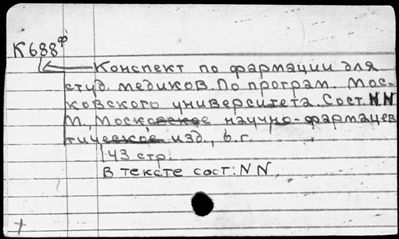 К688ф
Конспект по фармации для
студ. медиков. По програм. Мос-
ковского университета. Сост. NN
М., Московское научно-фармацев
тическое изд., б.г.
43 стр.
В тексте сост: NN.